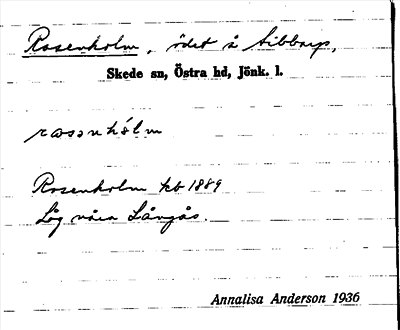 Rosenholm, ödet å Sibbarp,
Skede sn, Östra hd, Jönk. l.
rωsənhólm
Rosenholm kb 1889
Låg nära Långås.
Annalisa Anderson 1936